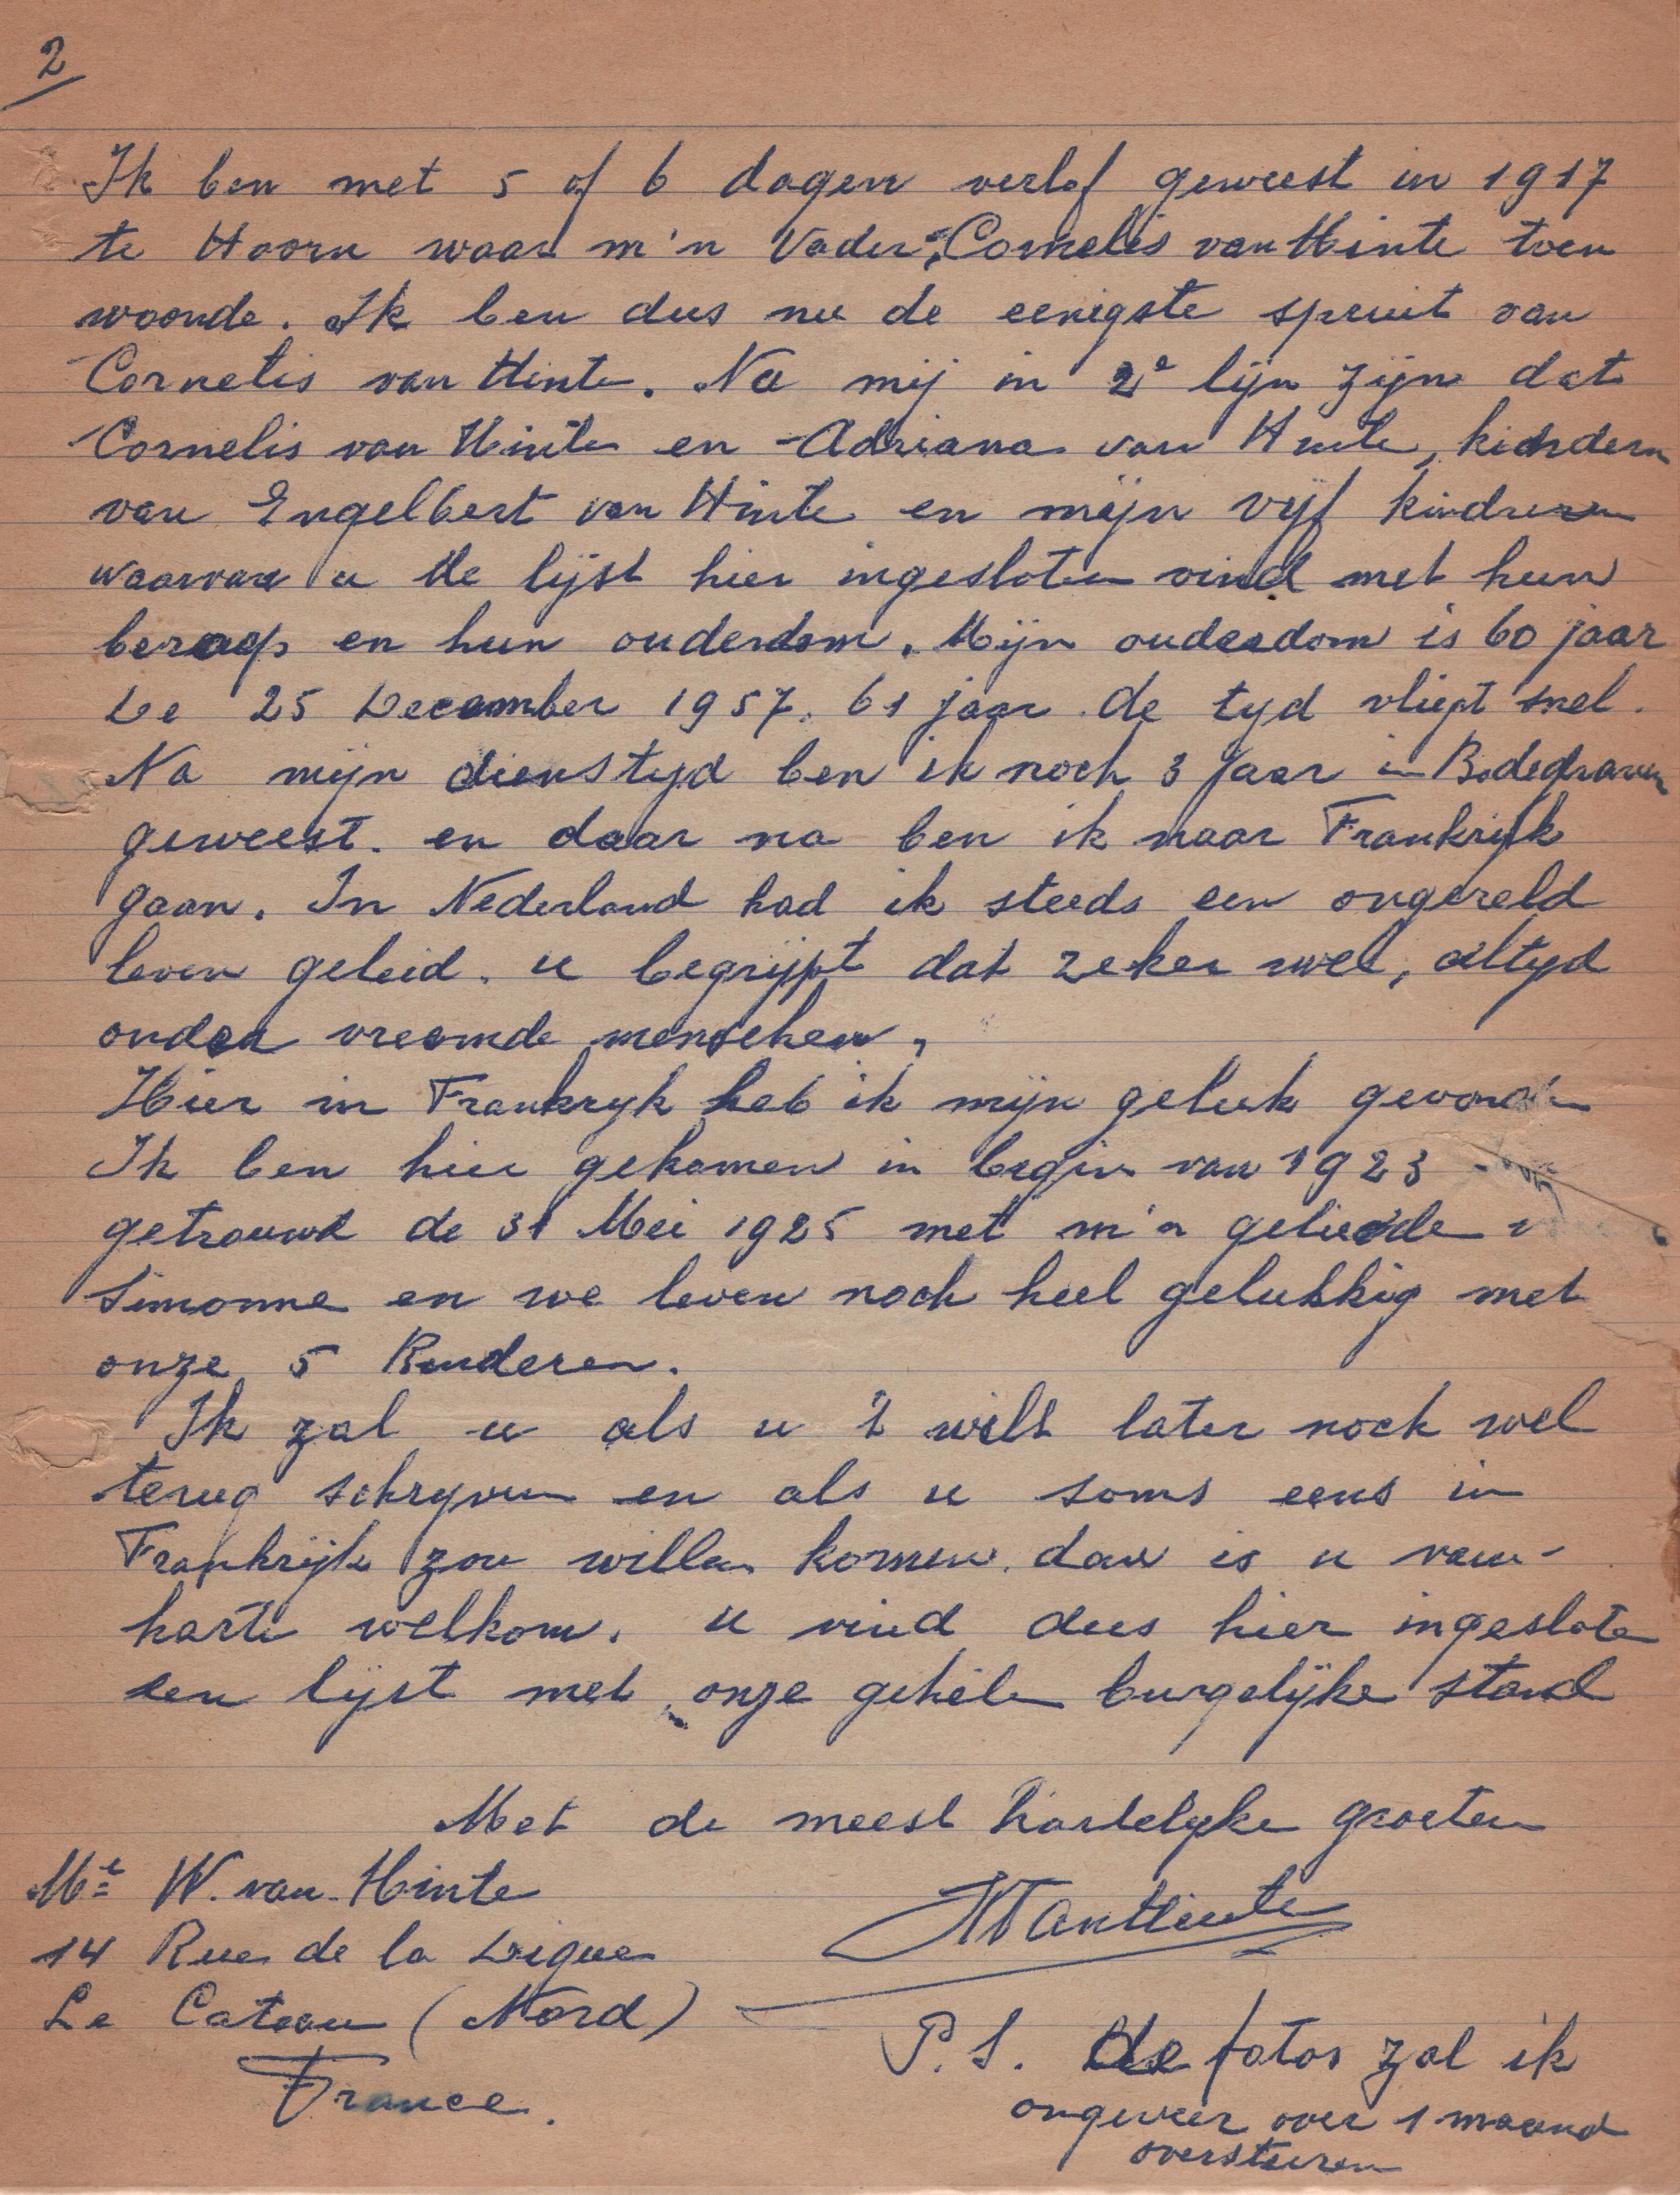 2
Ik ben met 5 of 6 dagen verlof geweest in 1917
te Hoorn waar m'n Vader, Cornelis van Hinte toen
woonde. Ik ben dus nu de eenigste spruit van
Cornelis van Hinte. Na mij in 2e lijn zijn dat
Cornelis van Hinte en Adriana van Hinte, kindern
van Engelbert van Hinte en mijn vijf kindren
waarvan u de lijst hier ingesloten vind met hun
beroep en hun ouderdom. Mijn ouderdom is 60 jaar
De 25 December 1957. 61 jaar. de tyd vliegt snel.
Na mijn diensttyd ben ik noch 3 jaar in Bodegraven
geweest. en daar na ben ik naar Frankrijk
gaan. In Nederland had ik steeds een ongereld
leven geleid. u begrijpt dat zeker wel, altyd
onder vreemde menschen,
Hier in Frankryk heb ik mijn geluk
Ik ben hier gekomen in begin van 1923
getrouwd de 31 Mei 1925 met m'n geliefde
Simonne en we leven noch heel gelukkig met
onze 5 Kinderen.
Ik zal u als u 't wilt later noch wel
terug schryven en als u soms eens in
Frankrijk zou willen komen. dan is u van
harte welkom. u vind dus hier ingesloten
een lijst met onze gehele burgelijke stand
Met de meest hartelyke groeten
Mr W. van Hinte
WVanHinte
14 Rue de la Digue
Le Cateau (Nord)
France.
P.S. de fotos zal ik
ongeveer over 1 maand
oversturen